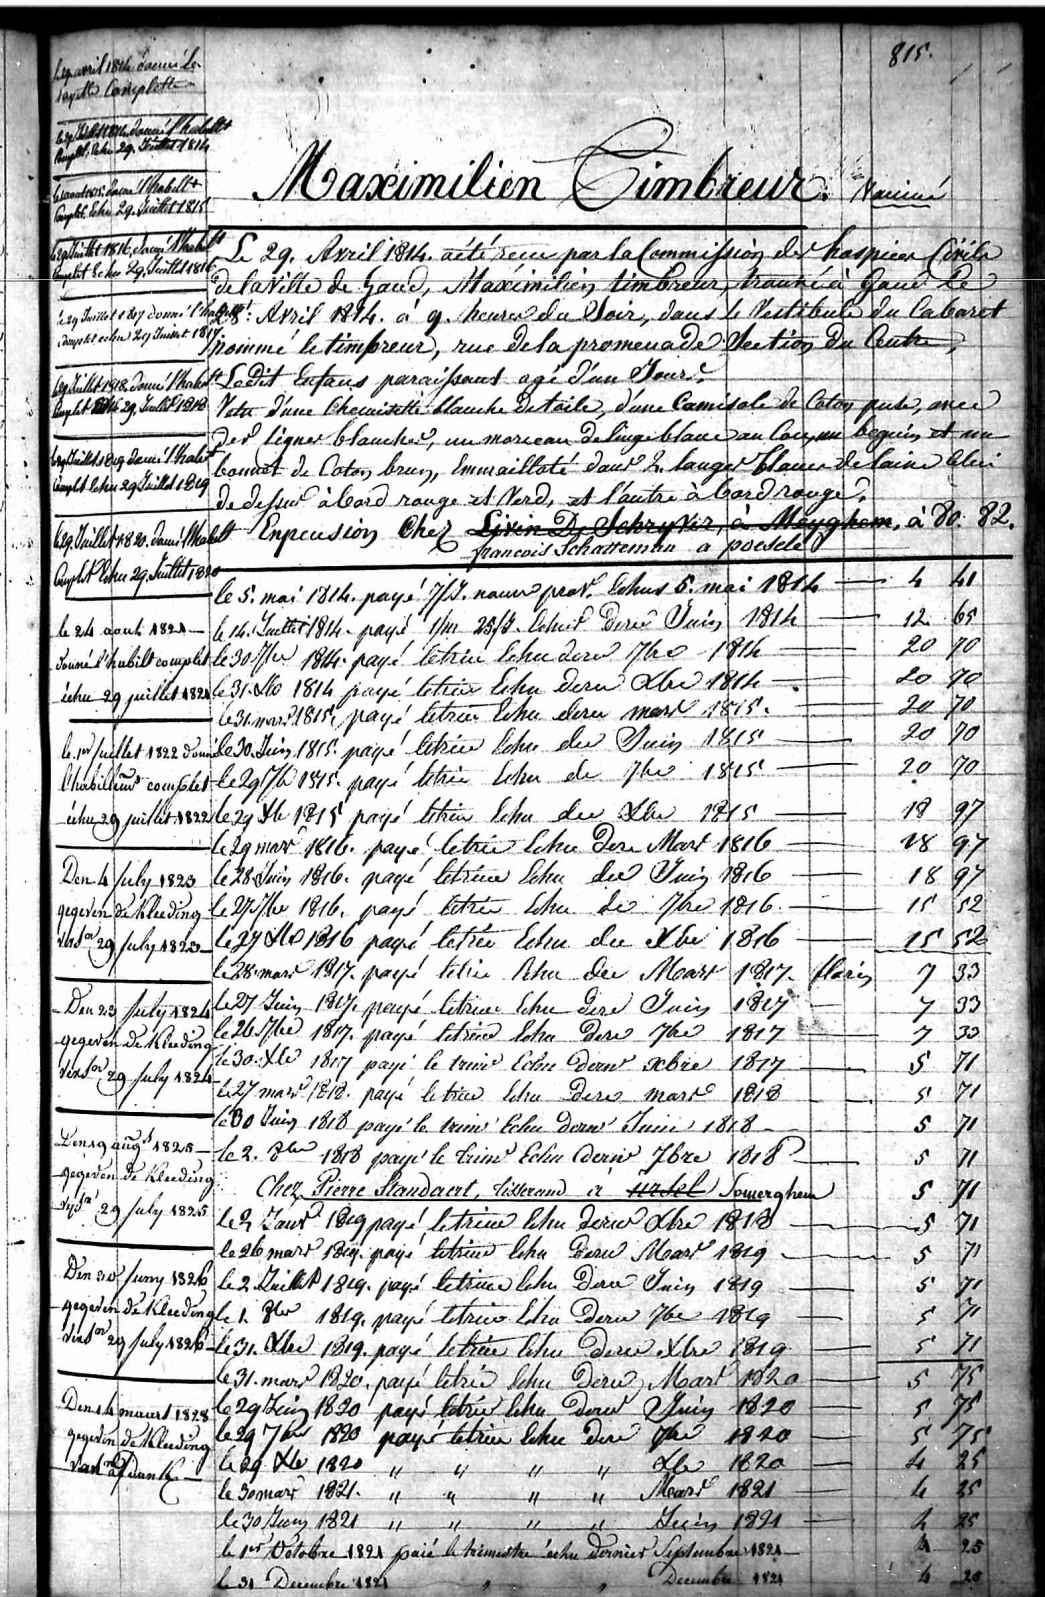 815.
Maximilien Timbreur. Vacciné
Le 29. Avril 1814. a été recu par la Commission des hospices Civils
de la Ville de Gand, Maximilien timbreur, trouvé à Gand le
28. Avril 1814. à 9. heures du Soir, dans le Vestibule du Cabaret
nommé le timbreur, rue de la promenade Section du Centre,
Ledit Enfans paraissant agé d'un Jour.
Vetu d'une Chemisette blanche de toile, d'une Camisole de Coton, avec
des lignes blanches, un morceau de linge blanc au Cou, un beguin et un
bonnet de Coton brun, Emmailloté dans 2. langes blancs de laine Celui
de dessus à bord rouge et Verd, et l'autre à bord rouge.
En pension Chez Livin De Schryver, à Meyghem, à 80: 82.
francois Schatteman a poesele
le 5. mai 1814. payé prov. Echus 5. mai 1814 4 41
le 14. Juillet 1814. payé Echus dern Juin 1814 12 65
le 30 7bre 1814. payé le trim Echu dern 7bre 1814 20 70
le 31. Xbre 1814 payé le trim Echu dern Xbre 1814 20 70
le 31. mars 1815, payé le trim Echu dern mars 1815. 20 70
le 30. Juin 1815. payé le trim Echu der Juin 1815 20 70
le 29 7bre 1815. payé le trim Echu de 7bre 1815 20 70
le 29 Xbre 1815 payé le trim Echu der Xbre 1815 18 97
le 29 mars 1816. payé le trim Echu dern Mars 1816 18 97
le 28. Juin 1816. payé le trim Echu der Juin 1816 18 97
le 27 7bre 1816. payé le trim Echu de 7bre 1816 15 52
le 27 Xbre 1816 payé le trim Echu der Xbre 1816 15 52
le 28. mars 1817. payé le trim Echu der Mars 1817. florins 7 33
le 27 Juin 1817. payé le trim Echu dern Juin 1817 7 33
le 26 7bre 1817. payé le trim Echu dern 7bre 1817 7 33
le 30. Xbre 1817 payé le trim Echu dern xbre 1817 5 71
le 27 mars 1818. payé le trim Echu dern mars 1818 5 71
le 30 Juin 1818 payé le trim Echu dern Juin 1818 5 71
le 2. 8bre 1818 payé le trim Echu dern 7bre 1818 5 71
Chez Pierre Standaert, tisserand à ursel Somerghem 5 71
le 2 Janv 1819 payé le trim Echu dern Xbre 1818 5 71
le 26 mars 1819. payé le trim Echu dern Mars 1819 5 71
le 2. Juillet 1819. payé le trim Echu dern Juin 1819 5 71
le 1. 8bre 1819. payé le trim Echu dern 7bre 1819 5 71
le 31. Xbre 1819. payé le trim Echu dern Xbre 1819 5 71
le 31. mars 1820. payé le trim Echu dern Mars 1820 5 75
le 29 Juin 1820 payé le trim Echu dern Juin 1820 5 75
le 29 7bre 1820 payé le trim Echu dern 7bre 1820 5 75
le 29 Xbre 1820 " " " " Xbre 1820 4 25
le 30 mars 1821. " " " " Mars 1821 4 25
le 30 Juin 1821 " " " " Juin 1821 4 25
le 1er Octobre 1821 paié le trimestre échu dernier Septembre 1821 4 25
le 31 Decembre 1821 " " Decembre 1821 4 25
le 29 avril 1814 donné la
layette Complette
donné l'habillt
Complet. Echu 29. Juillet 1814
donné l'habillt
Complet. Echu 29. Juillet 1815
le 29 Juillet 1816. donné l'habillt
Complet Echu 29. Juillet 1816
le 29 Juillet 1817 donné l'habillt
Complet echu 29 Juillet 1817
le 29 Juillet 1818. donné l'habillt
Complet Echu 29. Juillet 1818
le 29 Juillet 1819 donné l'habillt
Complet Echu 29 Juillet 1819
le 29. Juillet 1820. donné l'habillt
Complet Echu 29. Juillet 1820
le 24 aout 1821
donné l'habillt complet
échu 29 juillet 1821
le 1er juillet 1822 donné
l'habillemt complet
échu 29 juillet 1822
Den 4 July 1823
gegeven de Kleeding
29 July 1823
Den 23 July 1824
gegeven de Kleeding
29 July 1824
Den 19 augt 1825
gegeven de Kleeding
29 July 1825
Den 30 Juny 1826
gegeven de Kleeding
29 July 1826
Den 14 maart 1828
gegeven de Kleeding
van afdank